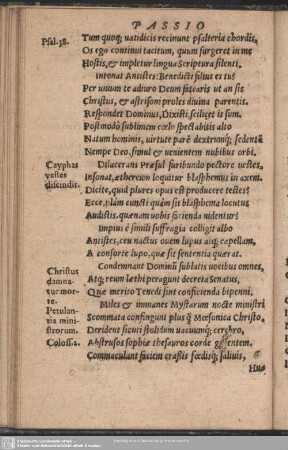 PASSIO
Psal. 38.
Tum quoq; uatidicis recinunt psalteria chordis,
Os ego continui tacitum, quum surgeret in me
Hostis, & impletur lingua Scriptura silenti.
Intonat Antistes: Benedicti filius es tu?
Per unum te adiuro Deum fatearis ut an sis
Christus, & astrisoni proles diuina parentis.
Respondet Dominus, Dixisti scilicet is sum.
Postmodò sublimem cœlo spectabitis alto
Natum hominis, uirtute patrẽ dextramq́; sedentẽ
Nempe Deo, simul & uenientem nubibus orbi.
Cayphas
uestes
discindit.
Dilacerans Præsul furibundo pectore uestes,
Insonat, æthereum loquitur blasphemus in axem.
Dicite, quid plures opus est producere testes?
Ecce, palàm cuncti quàm sit blasphema locutus
Audistis. quænam uobis facienda uidentur?
Impius è simili suffragia colligit albo
Antistes, ceu nactus ouem lupus atq; capellam,
A consorte lupo, quæ sit sententia quærat.
Christus
damna-
tur mor-
te.
Condemnant Dominũ sublatis uocibus omnes,
Atq; reum læthi peragunt decreta Senatus,
Quæ meritò Tenedi sint conficienda bipenni.
Petulan-
tia mini-
strorum.
Miles & immanes Mystarum nocte ministri
Scommata confingunt plus q̃ Mæsonica Christo.
Derident sicuti stolidum uacuumq́; cerebro,
Coloss. 2.
Abstrusos sophiæ thesauros corde gerentem.
Commaculant faciem crassis fœdisq́; saliuis,